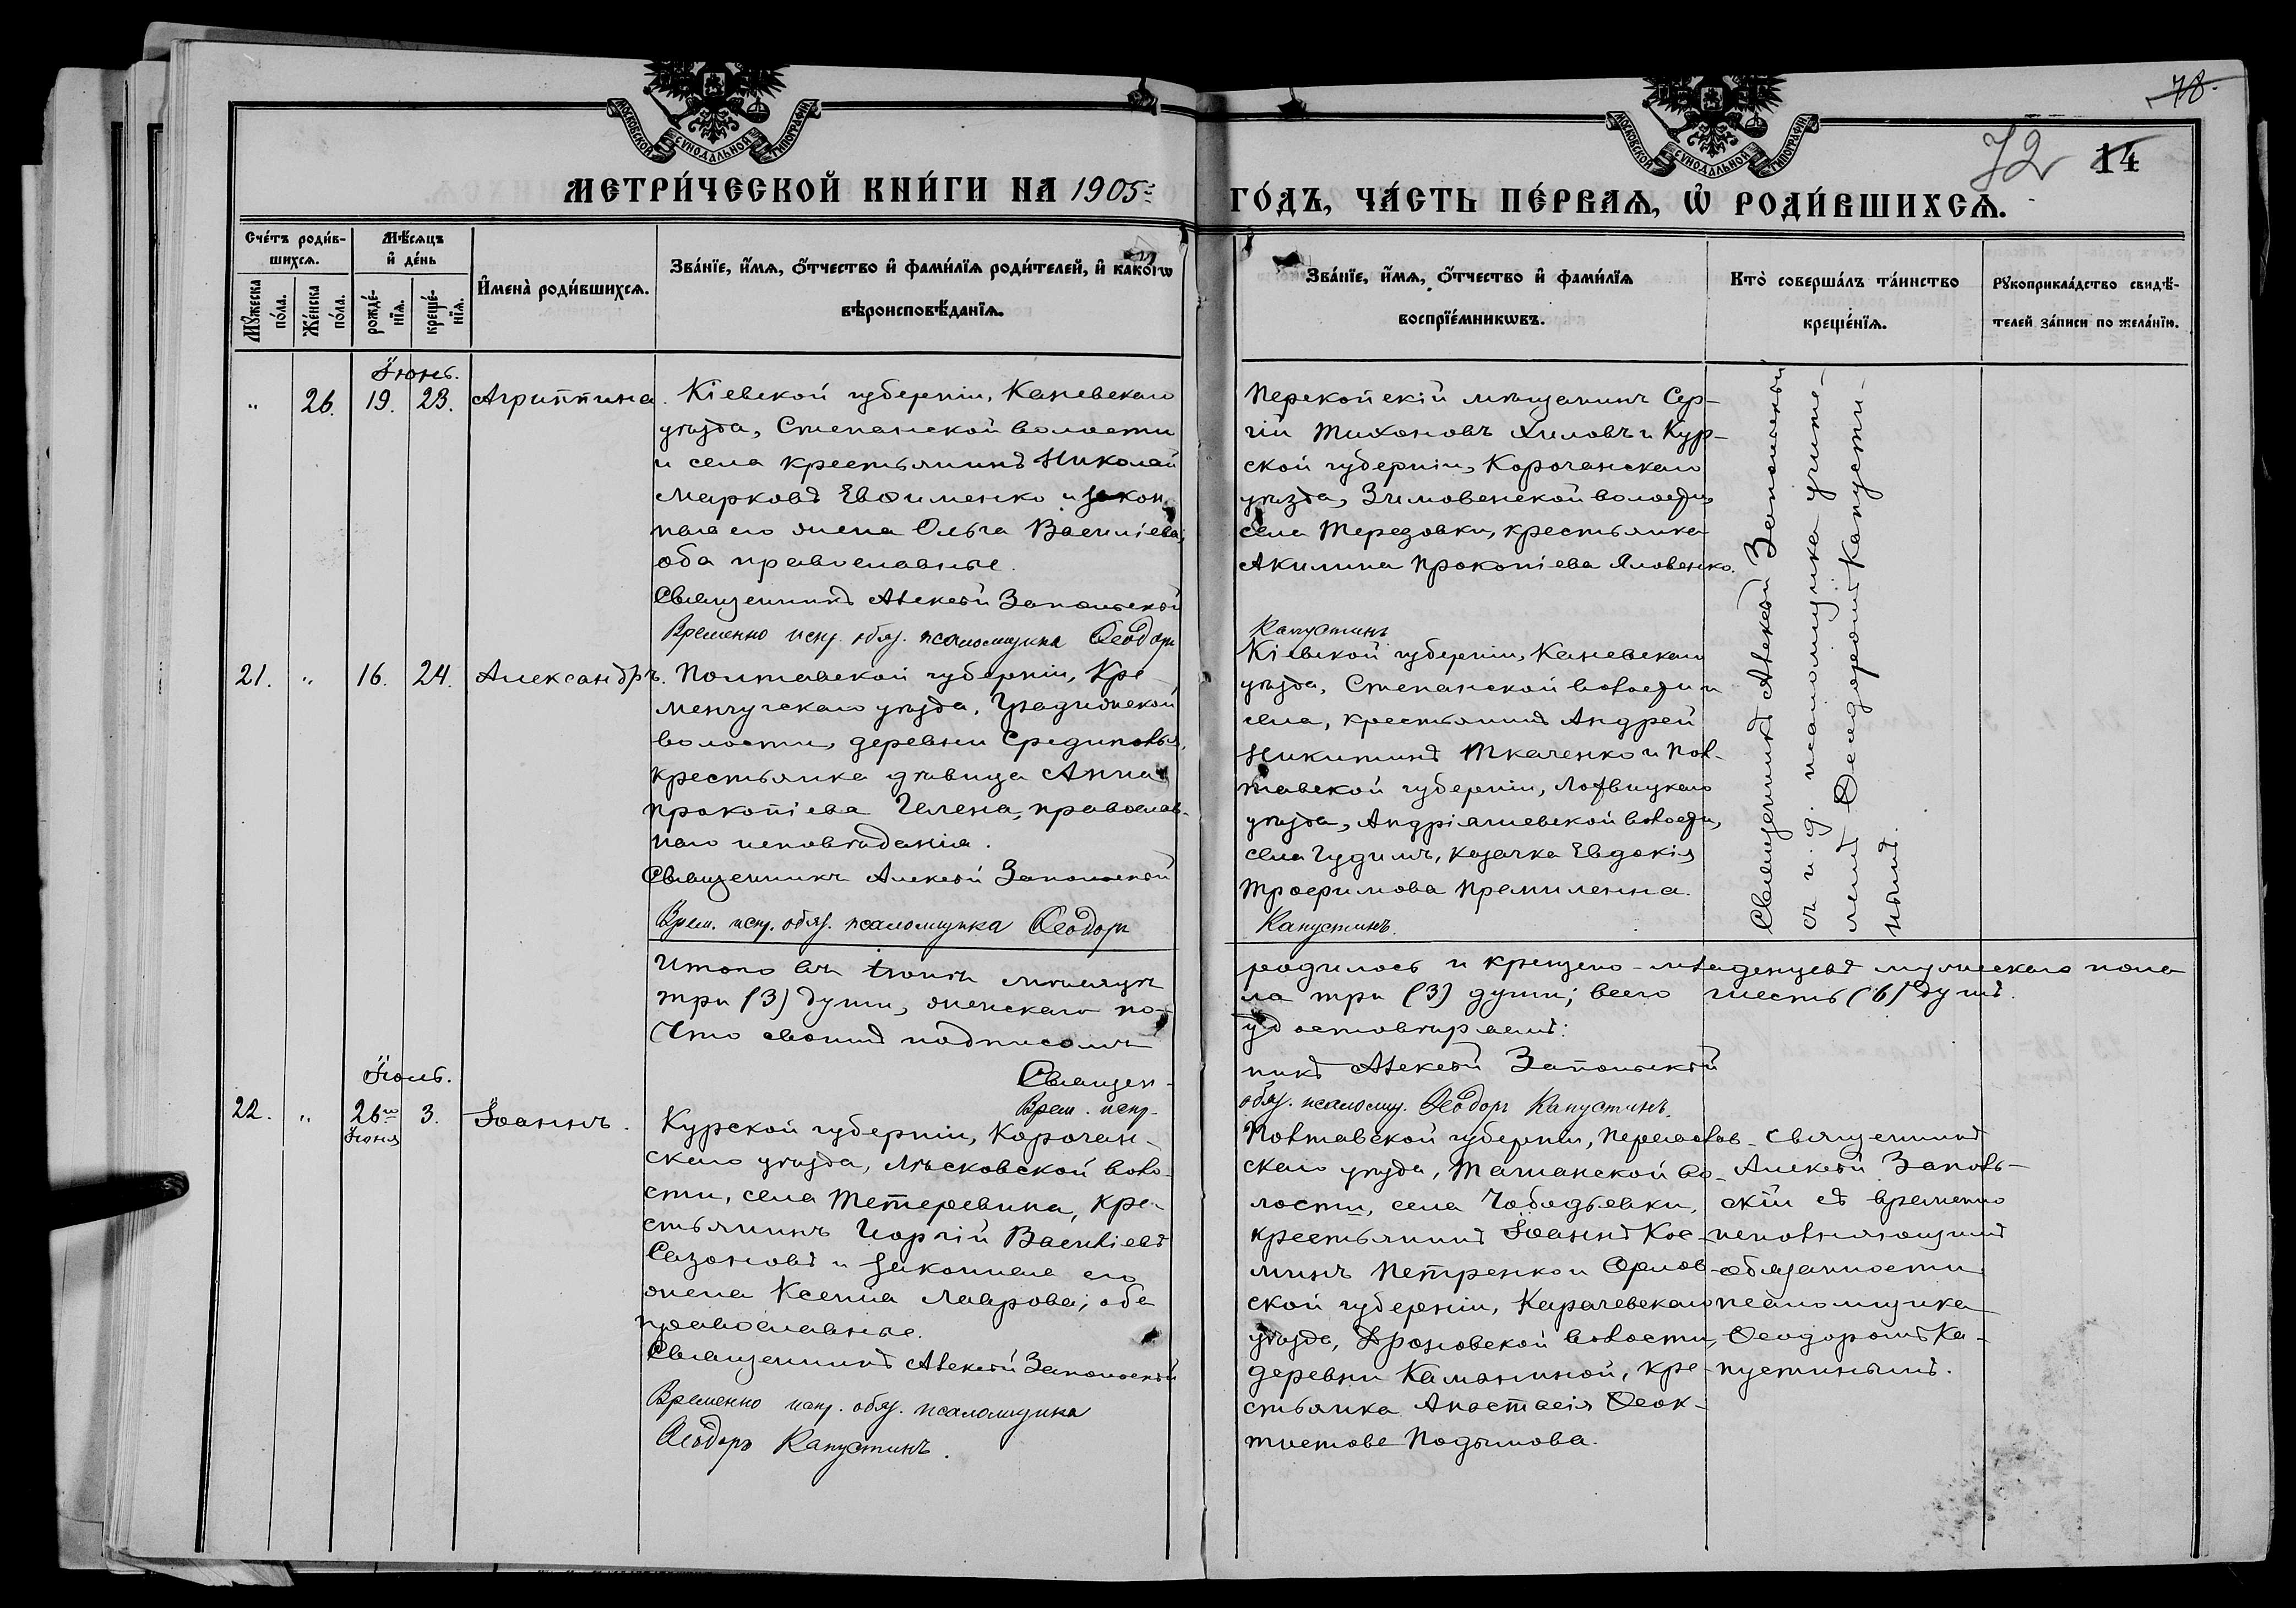 78.
72 14
МОСКОВСКОЙ СѴНОДАЛЬНОЙ ТИПОГРАФІИ
МОСКОВСКОЙ СѴНОДАЛЬНОЙ ТИПОГРАФІИ
МЕТРИ́ЧЕСКОЙ КНИ́ГИ НА 1905:
ГО́ДЪ, ЧА́СТЬ ПЕ́РВАѦ, Ѡ҆ РОДИ́ВШИХСѦ.
Сче́тъ роди́в-
шихсѧ.
Мꙋ́жеска по́ла.
Же́нска по́ла.
Мѣ́сѧцъ
и҆ де́нь
рожде́-
нїѧ.
креще́-
нїѧ.
И҆мена̀ роди́вшихсѧ.
Зва́нїе, и҆́мѧ, ѻ҆́тчество и҆ фами́лїѧ роди́телей, и҆ како́гѡ
вѣроисповѣ́данїѧ.
Зва́нїе, и҆́мѧ, ѻ҆́тчество и҆ фами́лїѧ
воспрїе́мникѡвъ.
Кто̀ соверша́лъ та́инство
креще́нїѧ.
Рꙋкоприкла́дство свидѣ́-
телей за́писи по жела́нїю.
Іюнь.
" 26. 19. 23. Агриппина.
Кіевской губерніи, Каневскаго
уѣзда, Степанской волости
и села крестьянинъ Николай
Марковъ Евѳименко и закон-
ная его жена Ольга Василіева,
оба православные.
Священникъ Алексѣй Запольскій
Временно испр. обяз. псаломщика Ѳеодоръ
Перекопскій мѣщанинъ Сер-
гій Тихоновъ Хиловъ и Кур-
ской губерніи, Корочанскаго
уѣзда, Зимовенской волости
села Терезовки, крестьянка
Акилина Прокопіева Яловенко.
Капустинъ
Священникъ Алексѣй Запольскій
съ и. д. псаломщика учите-
лемъ Ѳеодоромъ Капусти-
нымъ.
21. " 16. 24. Александръ.
Полтавской губерніи, Кре-
менчугскаго уѣзда, Градижской
волости, деревни
крестьянка дѣвица Анна
Прокопіева православ-
наго исповѣданія.
Священникъ Алексѣй Запольскій
Врем. испр. обяз. псаломщика Ѳеодоръ
Кіевской губерніи, Каневскаго
уѣзда, Степанской волости и
села, крестьянинъ Андрей
Никитинъ Ткаченко и Пол-
тавской губерніи, Лохвицкаго
уѣзда, Андріяшевской волости,
села Гудимъ, казачка Евдокія
Трофимова
Капустинъ.
Итого въ Іюнѣ мѣсяцѣ
родилось и крещено младенцевъ мужескаго пола
три (3) души, женскаго по-
ла три (3) души; всего шесть (6) душъ.
Что своимъ подписомъ
удостовѣряемъ:
Священ-
никъ Алексѣй Запольскій
Врем. испр.
обяз. псаломщ. Ѳеодоръ Капустинъ.
Іюль.
22. " 26го Іюня 3. Іоаннъ.
Курской губерніи, Корочан-
скаго уѣзда, волo-
сти, села Тетеревина, кре-
стьянинъ Георгій Василіевъ
Сазоновъ и законная его
жена Ксенія Лаврова, оба
православные.
Священникъ Алексѣй Запольскій
Временно испр. обяз. псаломщика
Ѳеодоръ Капустинъ.
Полтавской губерніи, Переяслав-
скаго уѣзда, Ташанской во-
лости, села
крестьянинъ Іоаннъ Кос-
минъ Петренко и Орлов-
ской губерніи, Карачевскаго
уѣзда, Дроновской волости,
деревни Каманиной, кре-
стьянка Анастасія Ѳеок-
тистова Подымова.
Священникъ
Алексѣй Заполь-
скій съ временно
исполняющимъ
обязанности
псаломщика
Ѳеодоромъ Ка-
пустинымъ.